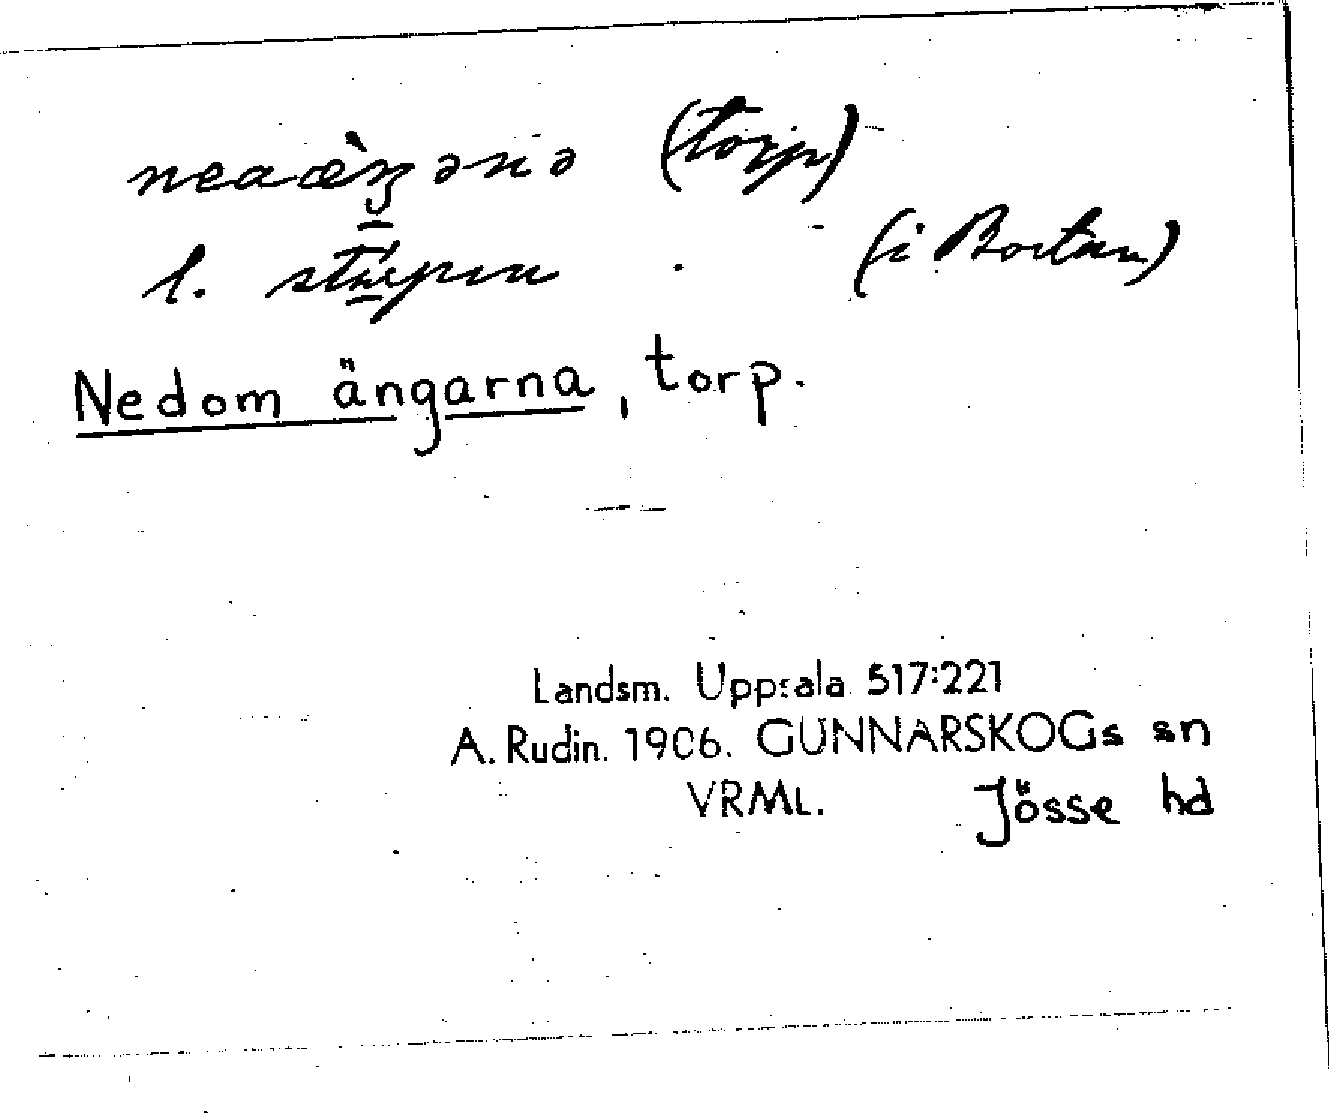 neaæ̀ŋənə (torp)
l. (i Bortan)
Nedom ängarna, torp.
Landsm. Uppsala 517:221
A. Rudin. 1906. GUNNARSKOGs sn
VRML. Jösse hd